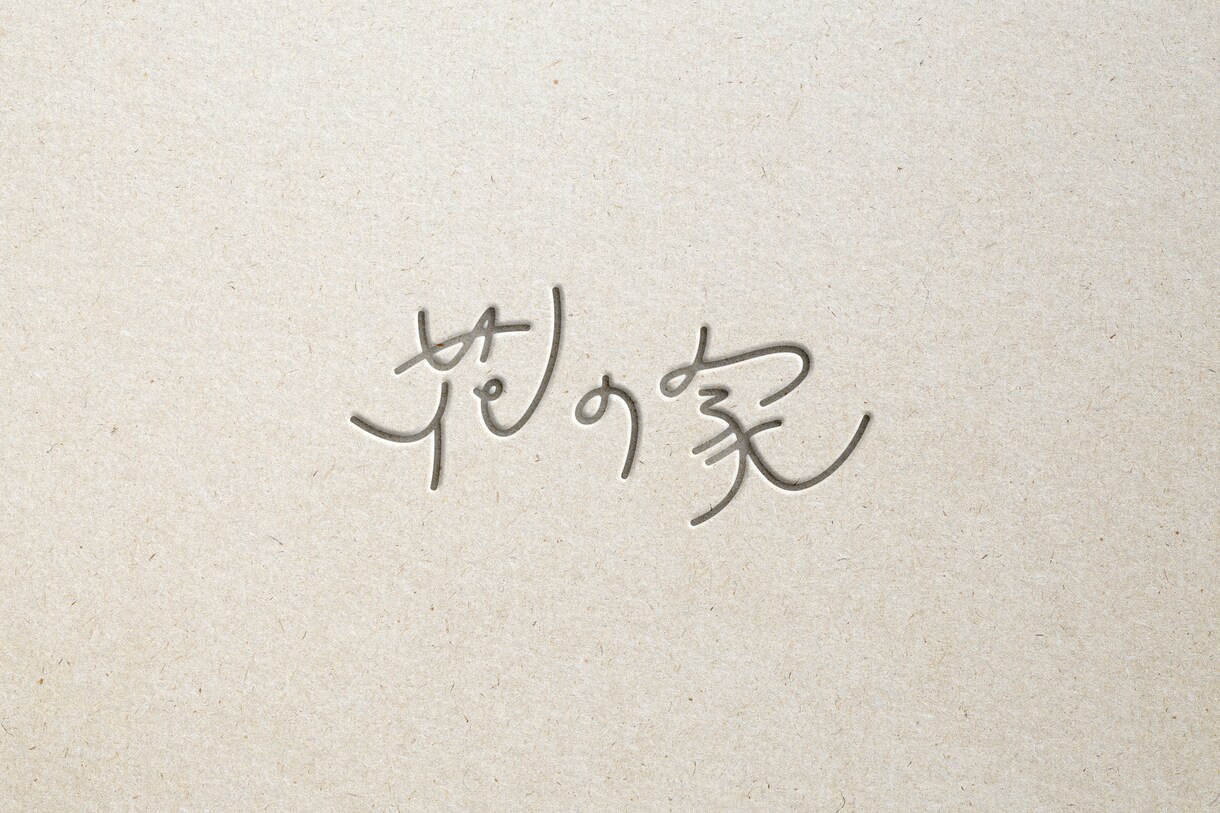 花の家